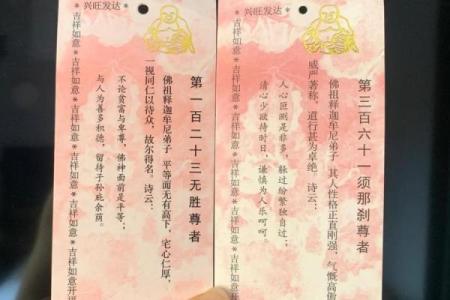 兴旺发达
*吉祥如意*吉祥如意*吉祥如意*吉祥如意
第一百二十三无胜尊者
佛祖释迦牟尼弟子 平等而无有高下，宅心仁厚，
一视同仁以待众，故尔得名。诗云：
不论贫富与卑尊，佛神面前是平等；
与人为善多积德，留待子孙庇余荫。
兴旺发达
*吉祥如意*吉祥如意*吉祥如意*吉祥如意
第三百六十一须那刹尊者
佛祖释迦牟尼弟子 其人性格正直刚强，气慨高傲
威严著称，道行甚为卓绝。诗云：
人心叵测是非多，躲过纷繁独自过；
清心少欲待时日，谦慎为人乐呵呵。